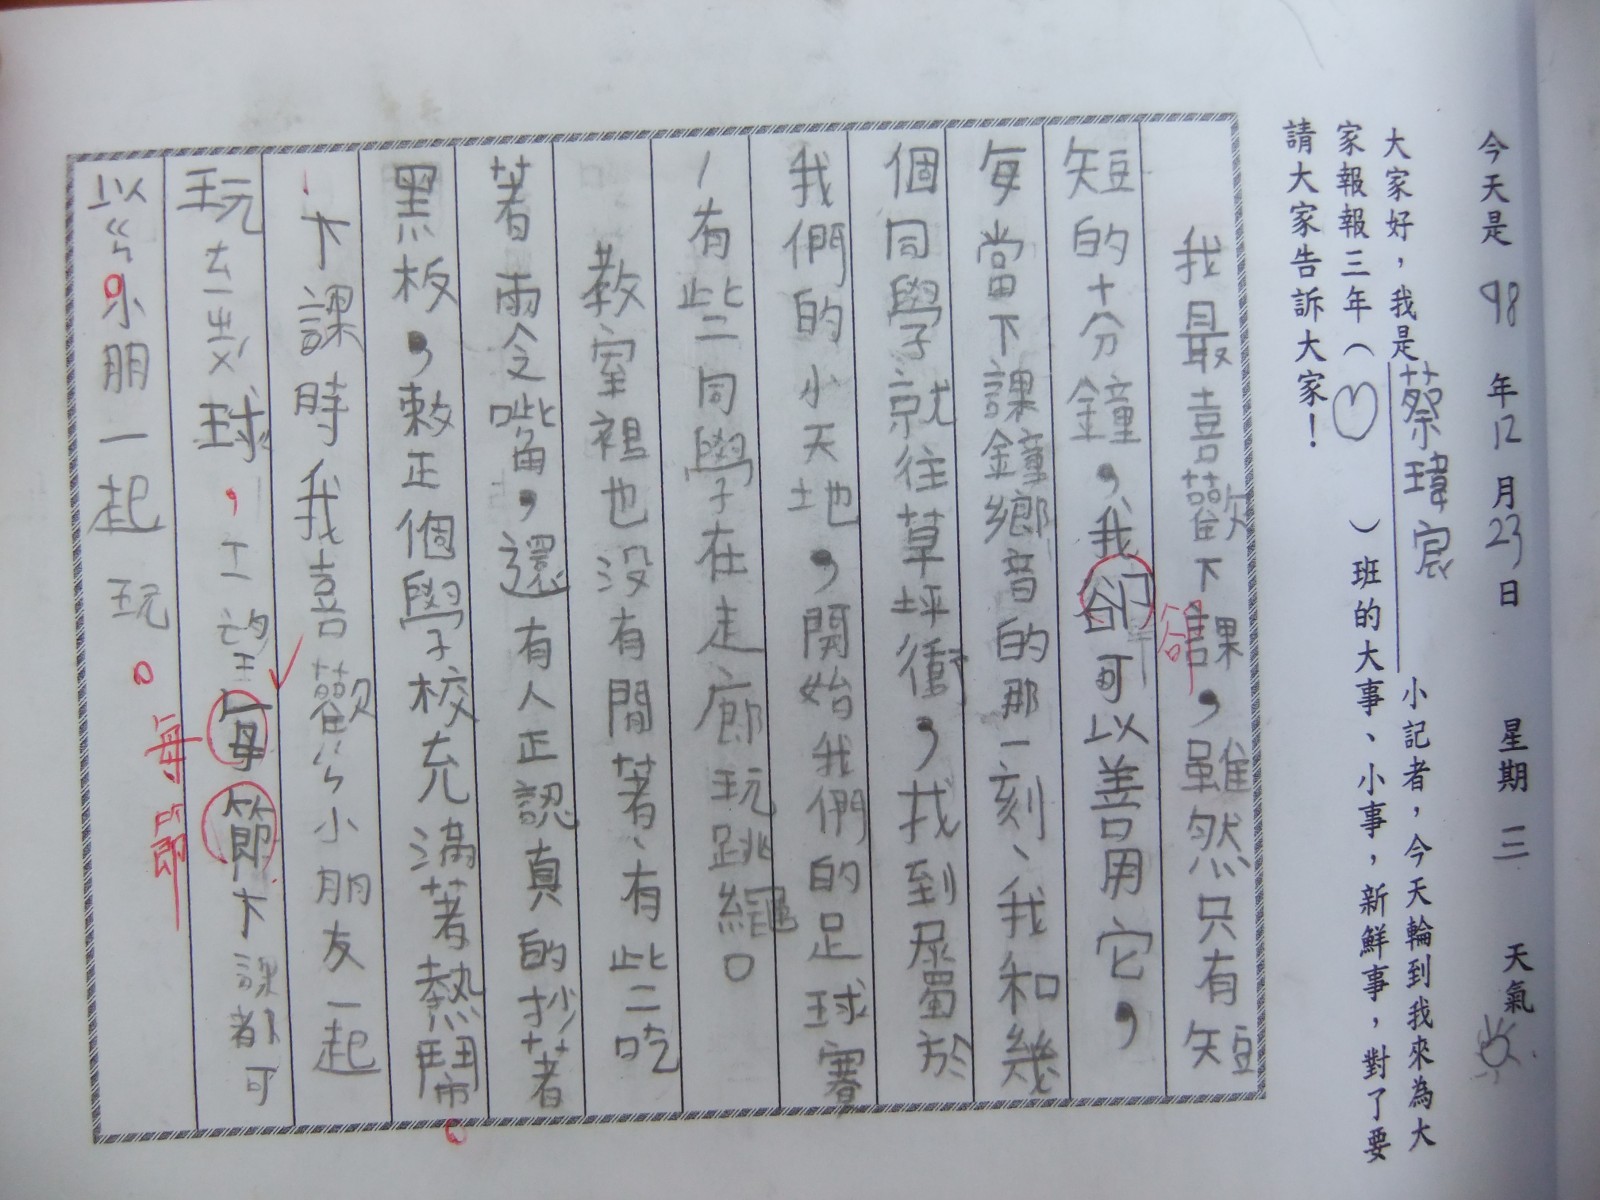 今天是 98 年 12 月 23 日 星期 三 天氣
大家好，我是蔡瑋宸小記者，今天輪到我來為大
家報報三年（♡）班的大事、小事，新鮮事，對了要
請大家告訴大家！
我最喜歡下課，雖然只有短
短的十分鐘，我卻可以善用它，
卻
每當下課鐘鄉音的那一刻、我和幾
個同學就往草坪衝，找到屬於
我們的小天地，開始我們的足球賽
、有些同學在走廊玩跳繩。
教室裡也沒有閒著、有些吃
著雨令嘴角，還有人正認真的抄著
黑板，敕正個學校充滿著熱鬧。
下課時我喜歡ㄍㄣ小朋友一起
玄一起
玩去ㄧ球，ㄒㄧ望每節下課都可
以ㄍㄣ小朋一起玩。
每節